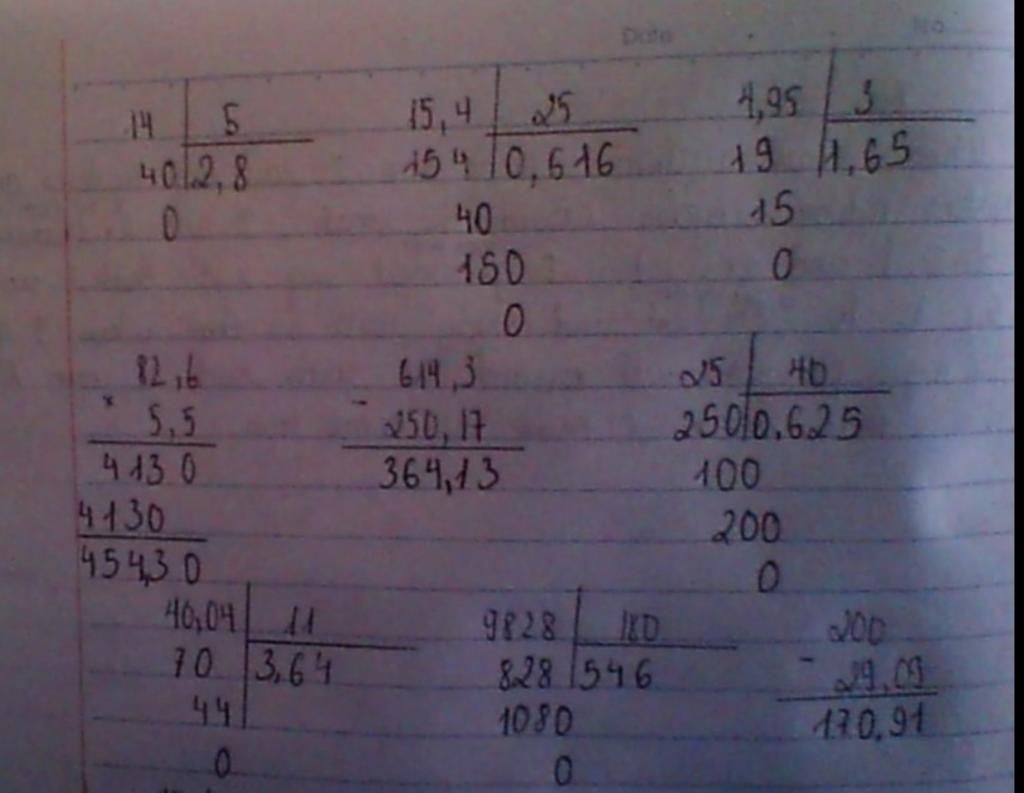 Date No
14 5 15,4 25 4,95 3
40 2,8 154 0,616 19 1,65
0 40 15
150 0
0
82,6 614,3 25 40
× 5,5 - 250,17 250 0,625
4130 364,13 100
4130 200
454,30 0
40,04 11 9828 180 200
70 3,64 828 546 - 29,09
44 1080 170,91
0 0